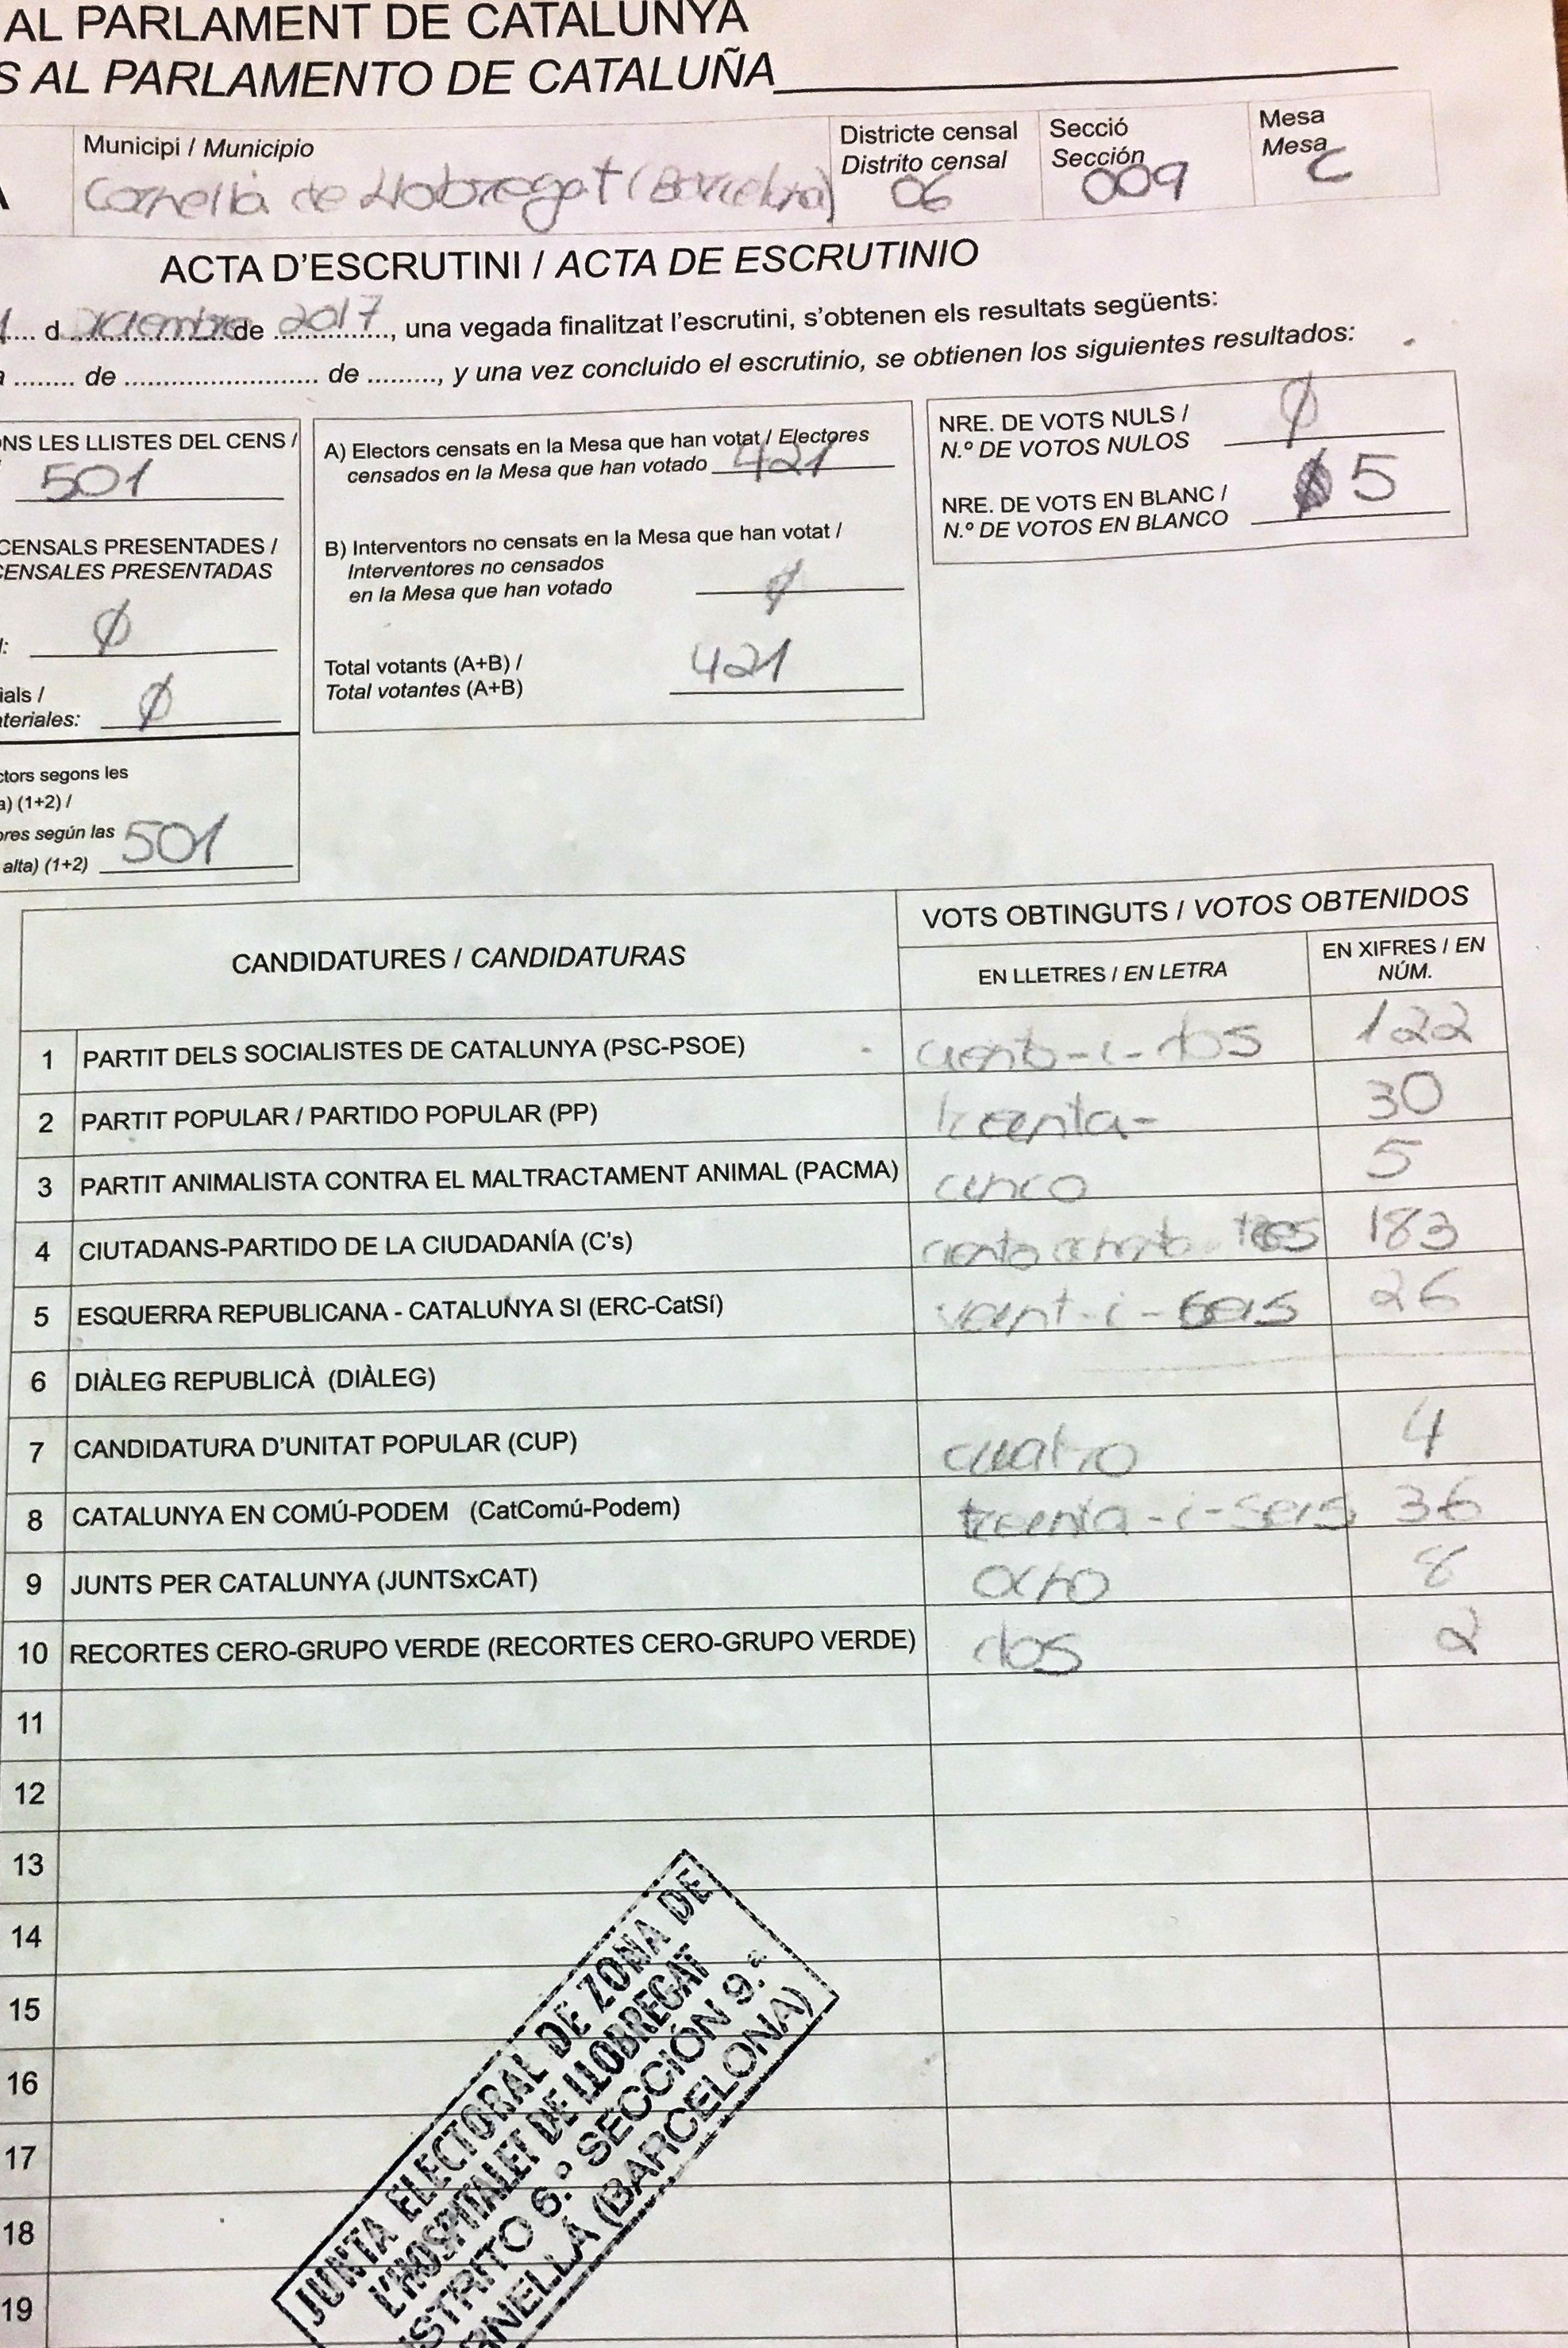 AL PARLAMENT DE CATALUNYA
S AL PARLAMENTO DE CATALUÑA
Municipi / Municipio
Cornellà de Llobregat (Barcelona)
Districte censal
Distrito censal
06
Secció
Sección
009
Mesa
Mesa
C
A
ACTA D'ESCRUTINI / ACTA DE ESCRUTINIO
1.... d diciembre de 2017, una vegada finalitzat l'escrutini, s'obtenen els resultats següents:
a ........ de .......................... de ........., y una vez concluido el escrutinio, se obtienen los siguientes resultados:
ONS LES LLISTES DEL CENS /
501
CENSALS PRESENTADES /
CENSALES PRESENTADAS
l: ∅
ials /
ateriales: ∅
ctors segons les
a) (1+2) /
ores según las
alta) (1+2) 501
A) Electors censats en la Mesa que han votat / Electores
censados en la Mesa que han votado 421
B) Interventors no censats en la Mesa que han votat /
Interventores no censados
en la Mesa que han votado ∅
Total votants (A+B) /
Total votantes (A+B) 421
NRE. DE VOTS NULS /
N.º DE VOTOS NULOS ∅
NRE. DE VOTS EN BLANC /
N.º DE VOTOS EN BLANCO 5
CANDIDATURES / CANDIDATURAS
VOTS OBTINGUTS / VOTOS OBTENIDOS
EN LLETRES / EN LETRA
EN XIFRES / EN
NÚM.
1 PARTIT DELS SOCIALISTES DE CATALUNYA (PSC-PSOE) ciento-i-dos 122
2 PARTIT POPULAR / PARTIDO POPULAR (PP) treenta- 30
3 PARTIT ANIMALISTA CONTRA EL MALTRACTAMENT ANIMAL (PACMA) cinco 5
4 CIUTADANS-PARTIDO DE LA CIUDADANÍA (C's) ciento ochenta tres 183
5 ESQUERRA REPUBLICANA - CATALUNYA SI (ERC-CatSí) veint-i-seis 26
6 DIÀLEG REPUBLICÀ (DIÀLEG)
7 CANDIDATURA D'UNITAT POPULAR (CUP) cuatro 4
8 CATALUNYA EN COMÚ-PODEM (CatComú-Podem) treenta-i-seis 36
9 JUNTS PER CATALUNYA (JUNTSxCAT) ocho 8
10 RECORTES CERO-GRUPO VERDE (RECORTES CERO-GRUPO VERDE) dos 2
11
12
13
14
15
16
17
18
19
JUNTA ELECTORAL DE ZONA DE
L'HOSPITALET DE LLOBREGAT
STRITO 6.º SECCIÓN 9.ª
RNELLÁ (BARCELONA)